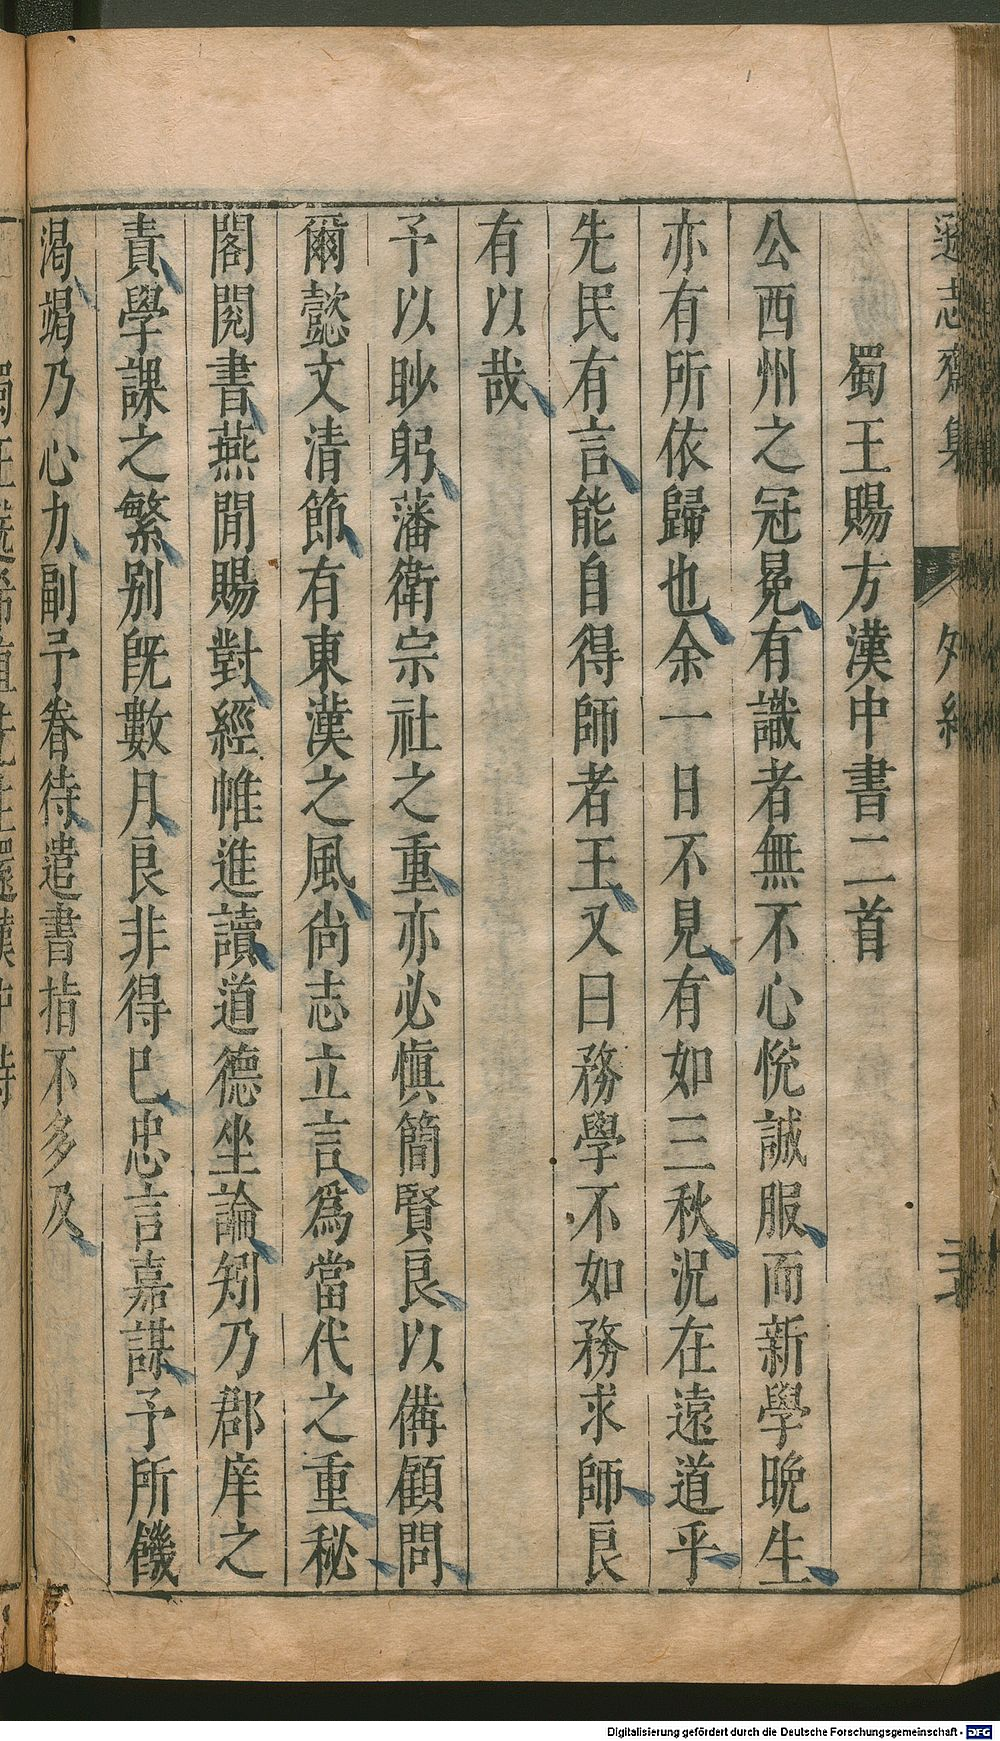 遜志齋集 外紀
蜀王賜方漢中書二首
公西州之冠冕有識者無不心悅誠服而新學晚生
亦有所依歸也余一日不見有如三秋況在遠道乎
先民有言能自得師者王又曰務學不如務求師良
有以哉
予以眇躬藩衛宗社之重亦必慎簡賢良以備顧問
爾懿文清節有東漢之風尚志立言為當代之重秘
閣閱書燕閒賜對經帷進讀道德坐論矧乃郡庠之
責學課之繁別旣數月良非得已忠言嘉謀予所饑
渴竭乃心力副予眷待遣書指不多及
Digitalisierung gefördert durch die Deutsche Forschungsgemeinschaft - DFG